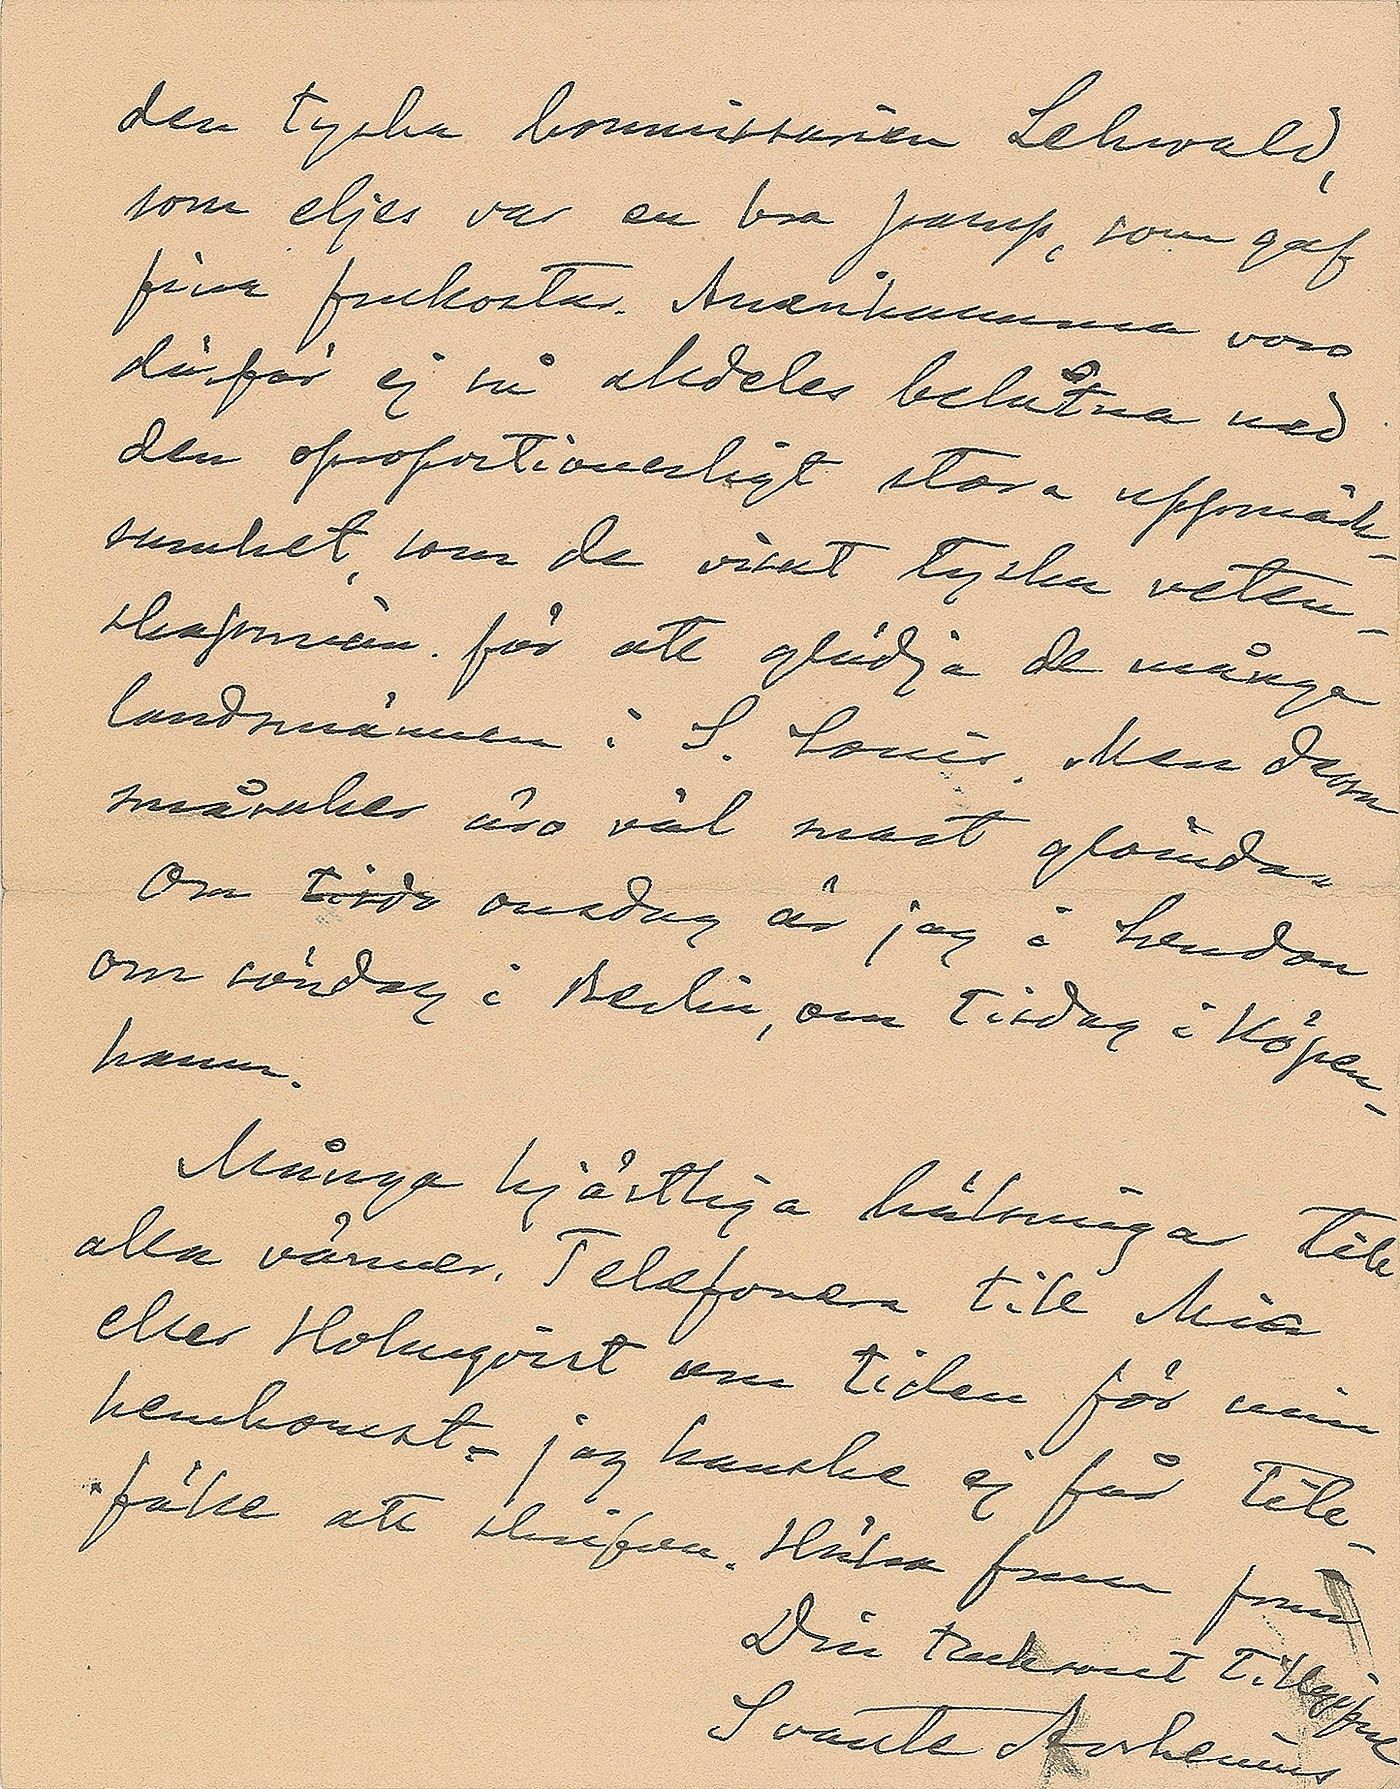 den tyska kommissarien Lehwald,
som eljes var en bra pamp, som gaf
fina frukostar. Amerikanarna voro
därför ej så alldeles belåtna med
den oproportionerligt stora uppmärk-
samhet, som de visat tyska veten-
skapsmän för att glädja de många
landsmännen i S. Louis. Men dessa
smårusker äro väl snart glömda.
Om tisda onsdag är jag i London
om söndag i Berlin, om tisdag i Köpen-
hamn.
Många hjärtliga hälsningar till
alla vänner. Telefonera till Mia
eller Holmqvist om tiden för min
hemkomst - jag kanske ej får till-
fälle att skrifva. Hälsa frun från
Din tacksamt tillgifne
Svante Arrhenius